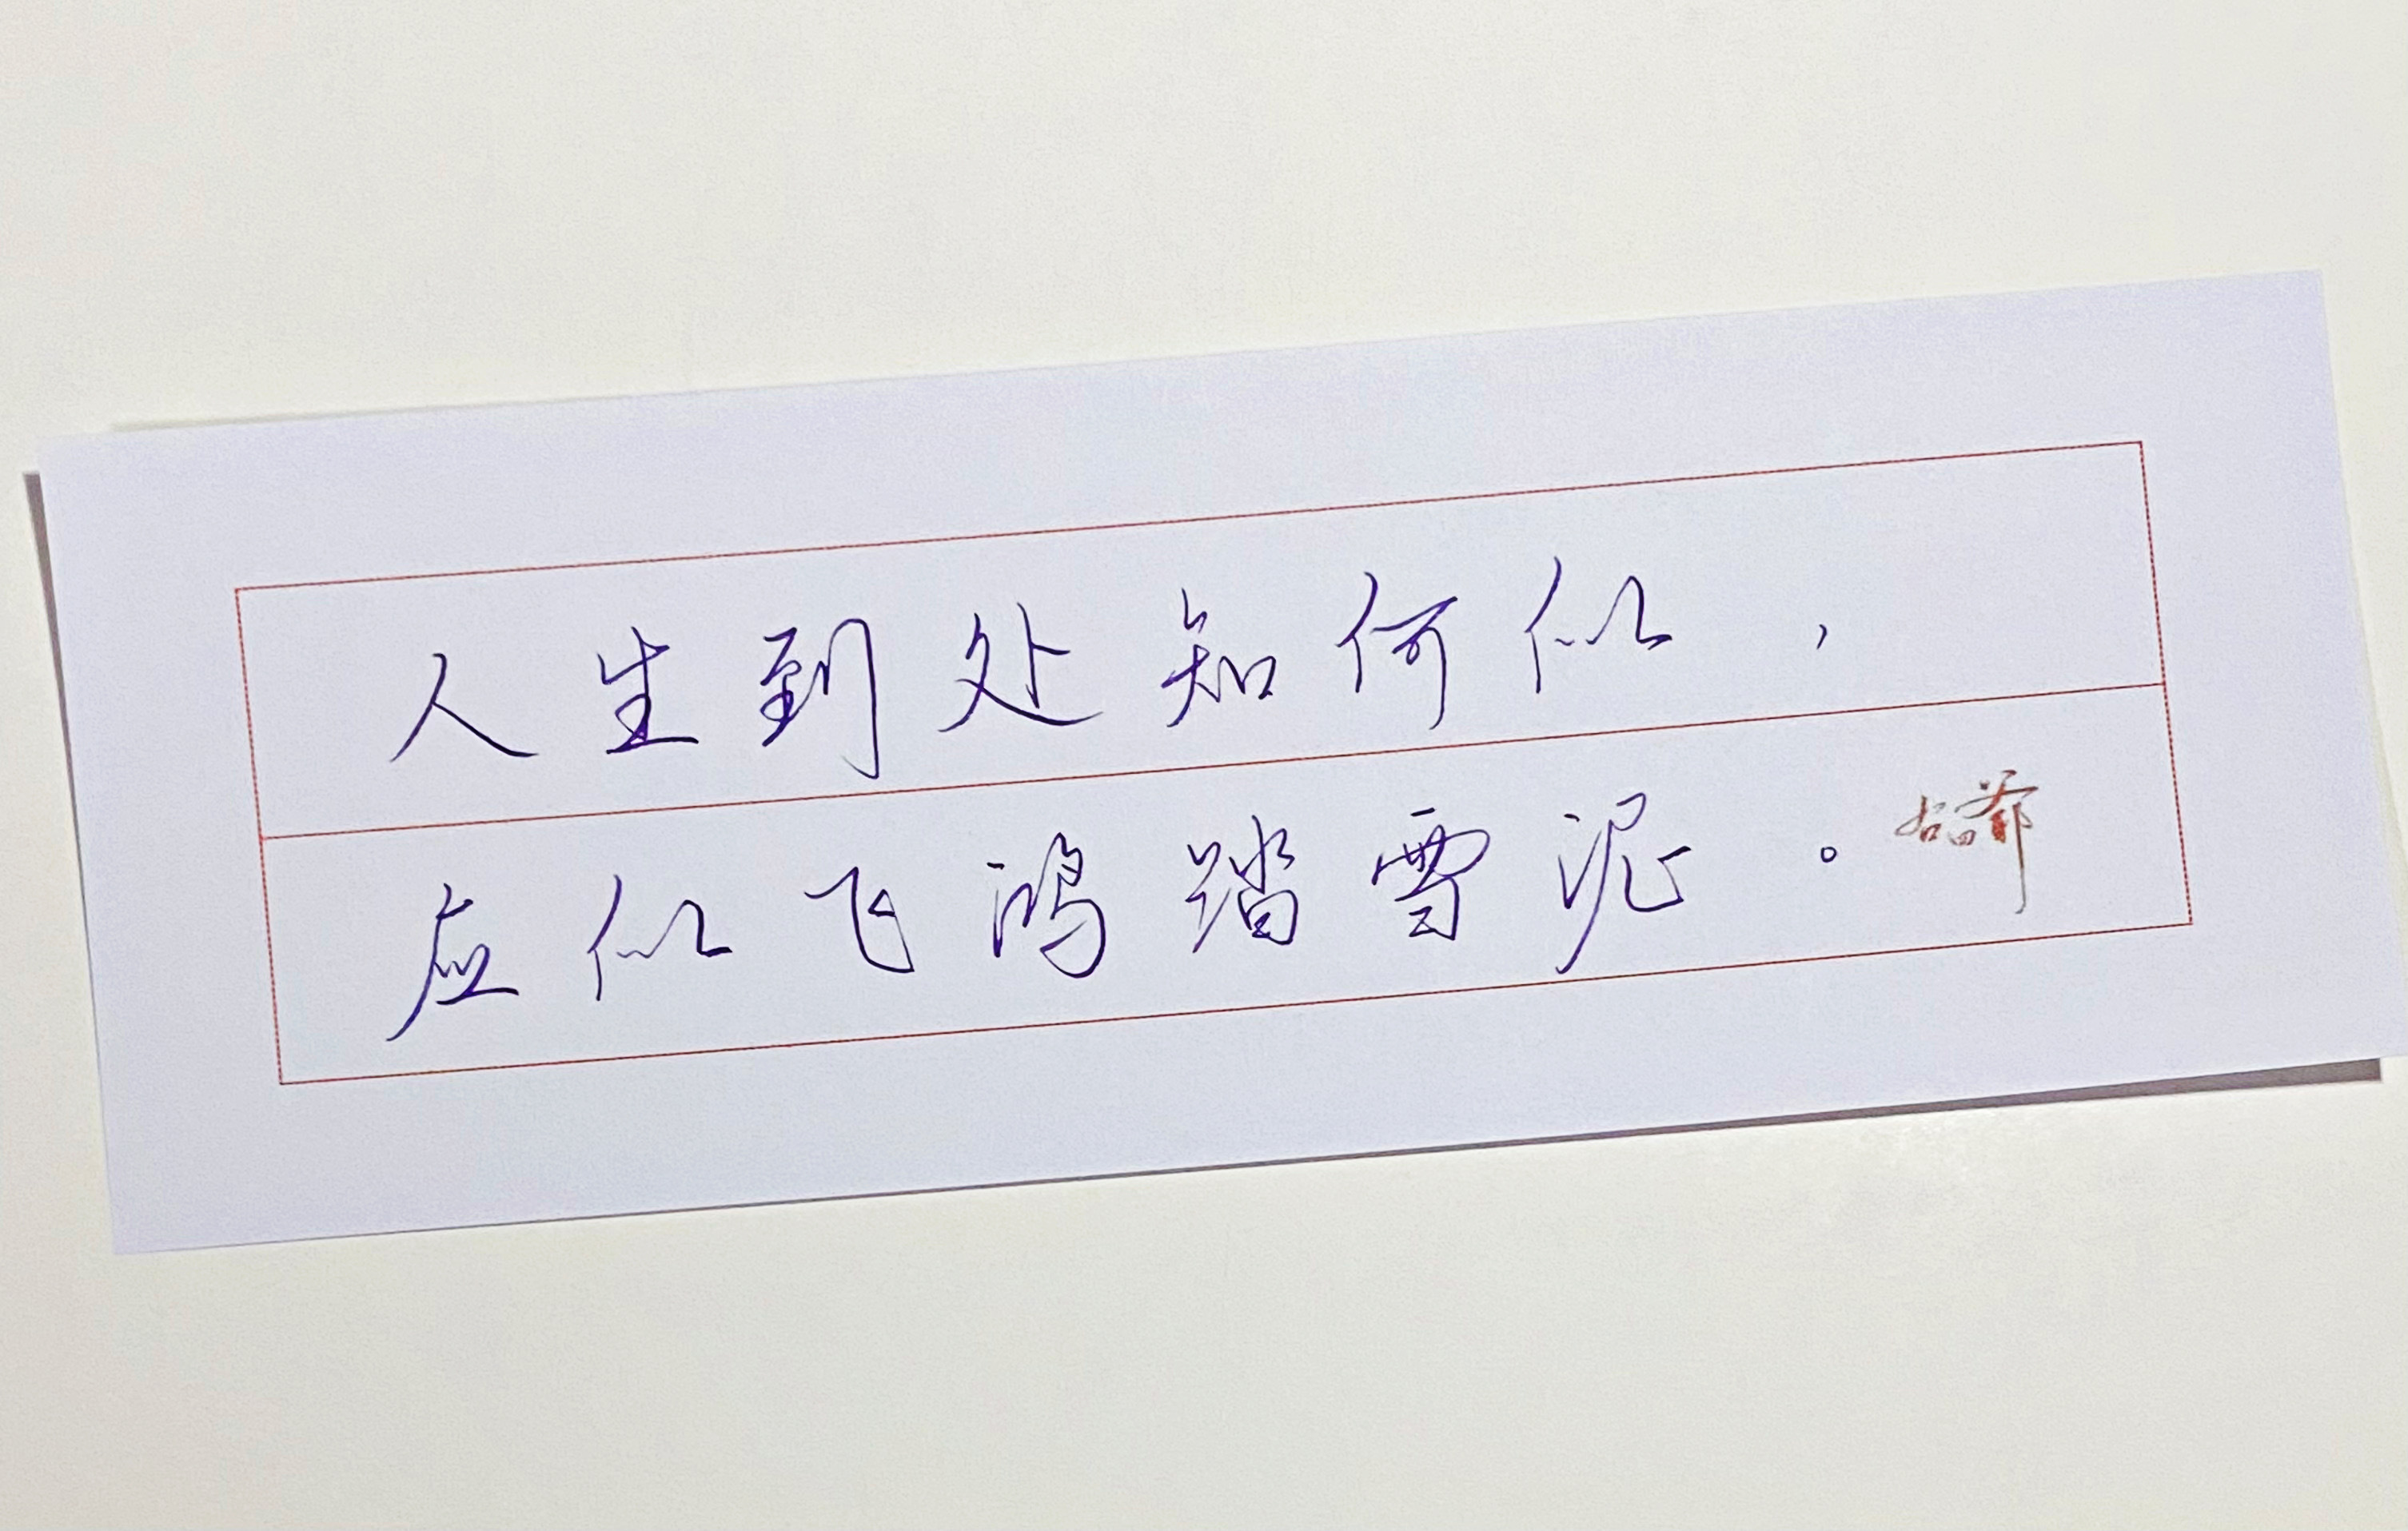 人生到处知何似，
应似飞鸿踏雪泥。